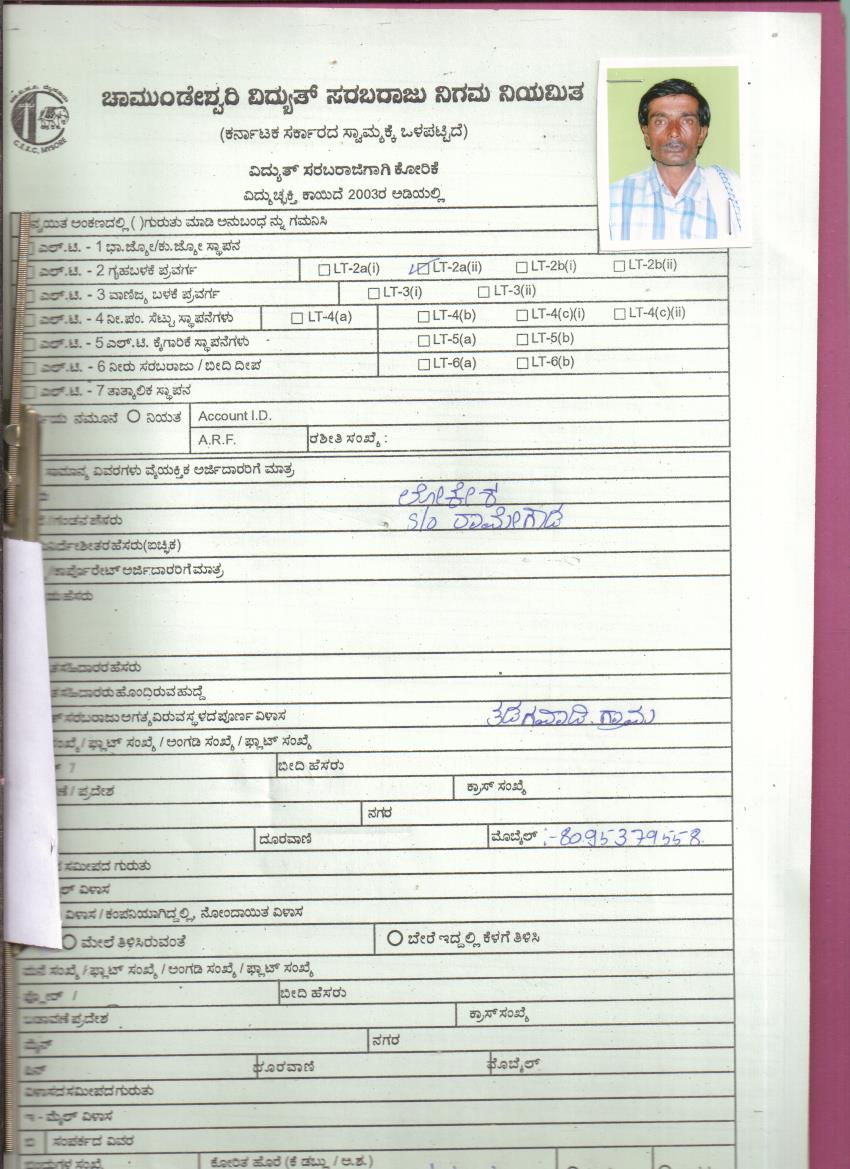 ಚಾಮುಂಡೇಶ್ವರಿ ವಿದ್ಯುತ್ ಸರಬರಾಜು ನಿಗಮ ನಿಯಮಿತ
C.E.S.C, MYSORE
(ಕರ್ನಾಟಕ ಸರ್ಕಾರದ ಸ್ವಾಮ್ಯಕ್ಕೆ ಒಳಪಟ್ಟಿದೆ)
ವಿದ್ಯುತ್ ಸರಬರಾಜಿಗಾಗಿ ಕೋರಿಕೆ
ವಿದ್ಯುಚ್ಛಕ್ತಿ ಕಾಯಿದೆ 2003ರ ಅಡಿಯಲ್ಲಿ
ಅಂಕಣದಲ್ಲಿ ( )ಗುರುತು ಮಾಡಿ ಅನುಬಂಧ ನ್ನು ಗಮನಿಸಿ
ಎಲ್.ಟಿ. - 1 ಭಾ.ಜ್ಯೋ/ಕು.ಜ್ಯೋ ಸ್ಥಾಪನ
ಎಲ್.ಟಿ. - 2 ಗೃಹಬಳಕೆ ಪ್ರವರ್ಗ LT-2a(i) LT-2a(ii) LT-2b(i) LT-2b(ii)
ಎಲ್.ಟಿ. - 3 ವಾಣಿಜ್ಯ ಬಳಕೆ ಪ್ರವರ್ಗ LT-3(i) LT-3(ii)
ಎಲ್.ಟಿ. - 4 ನೀ.ಪಂ. ಸೆಟ್ಟು ಸ್ಥಾಪನೆಗಳು LT-4(a) LT-4(b) LT-4(c)(i) LT-4(c)(ii)
ಎಲ್.ಟಿ. - 5 ಎಲ್.ಟಿ. ಕೈಗಾರಿಕೆ ಸ್ಥಾಪನೆಗಳು LT-5(a) LT-5(b)
ಎಲ್.ಟಿ. - 6 ನೀರು ಸರಬರಾಜು / ಬೀದಿ ದೀಪ LT-6(a) LT-6(b)
ಎಲ್.ಟಿ. - 7 ತಾತ್ಕಾಲಿಕ ಸ್ಥಾಪನ
ನಮೂನೆ ನಿಯತ Account I.D.
A.R.F. ರಶೀತಿ ಸಂಖ್ಯೆ :
ಸಾಮಾನ್ಯ ವಿವರಗಳು ವೈಯಕ್ತಿಕ ಅರ್ಜಿದಾರರಿಗೆ ಮಾತ್ರ
ಲೋಕೇಶ
/ಗಂಡನ ಹೆಸರು S/o ರಾಮೇಗೌಡ
ನಿರ್ದೇಶಿತರ ಹೆಸರು(ಐಚ್ಛಿಕ)
/ಕಾರ್ಪೊರೇಟ್ ಅರ್ಜಿದಾರರಿಗೆ ಮಾತ್ರ
ಹೆಸರು
ಸಹಿದಾರರ ಹೆಸರು
ಸಹಿದಾರರು ಹೊಂದಿರುವ ಹುದ್ದೆ
ಸರಬರಾಜು ಅಗತ್ಯವಿರುವ ಸ್ಥಳದ ಪೂರ್ಣ ವಿಳಾಸ ತಡಗವಾಡಿ. ಗ್ರಾಮ
ಸಂಖ್ಯೆ / ಫ್ಲಾಟ್ ಸಂಖ್ಯೆ / ಅಂಗಡಿ ಸಂಖ್ಯೆ / ಫ್ಲಾಟ್ ಸಂಖ್ಯೆ
ಬೀದಿ ಹೆಸರು
/ ಪ್ರದೇಶ ಕ್ರಾಸ್ ಸಂಖ್ಯೆ
ನಗರ
ದೂರವಾಣಿ ಮೊಬೈಲ್ :- 8095379558.
ಸಮೀಪದ ಗುರುತು
ವಿಳಾಸ
ವಿಳಾಸ / ಕಂಪನಿಯಾಗಿದ್ದಲ್ಲಿ, ನೋಂದಾಯಿತ ವಿಳಾಸ
ಮೇಲೆ ತಿಳಿಸಿರುವಂತೆ ಬೇರೆ ಇದ್ದಲ್ಲಿ ಕೆಳಗೆ ತಿಳಿಸಿ
ಮನೆ ಸಂಖ್ಯೆ / ಫ್ಲಾಟ್ ಸಂಖ್ಯೆ / ಅಂಗಡಿ ಸಂಖ್ಯೆ / ಫ್ಲಾಟ್ ಸಂಖ್ಯೆ
ಫ್ಲೋರ್ / ಬೀದಿ ಹೆಸರು
ಬಡಾವಣೆ ಪ್ರದೇಶ ಕ್ರಾಸ್ ಸಂಖ್ಯೆ
ಮೈನ್ ನಗರ
ಪಿನ್ ದೂರವಾಣಿ ಮೊಬೈಲ್
ವಿಳಾಸದ ಸಮೀಪದ ಗುರುತು
ಇ - ಮೈಲ್ ವಿಳಾಸ
ಬಿ ಸಂಪರ್ಕದ ವಿವರ
ಕೋರಿತ ಹೊರೆ (ಕೆ ಡಬ್ಲು / ಅ.ಶ.)